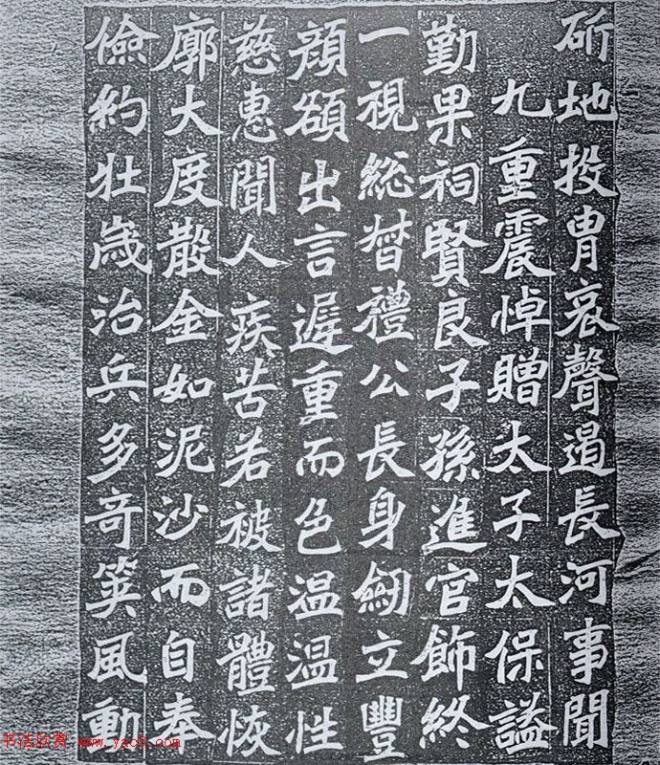 斫地投胄哀聲過長河事聞
九重震悼贈太子太保謚
勤果祠賢良子孫進官飾終
一視総督禮公長身劒立豐
顔額出言遲重而色温温性
慈惠聞人疾苦若被諸體恢
廓大度散金如泥沙而自奉
儉約壯歲治兵多奇筴風動
书法欣赏 www.yac8.com